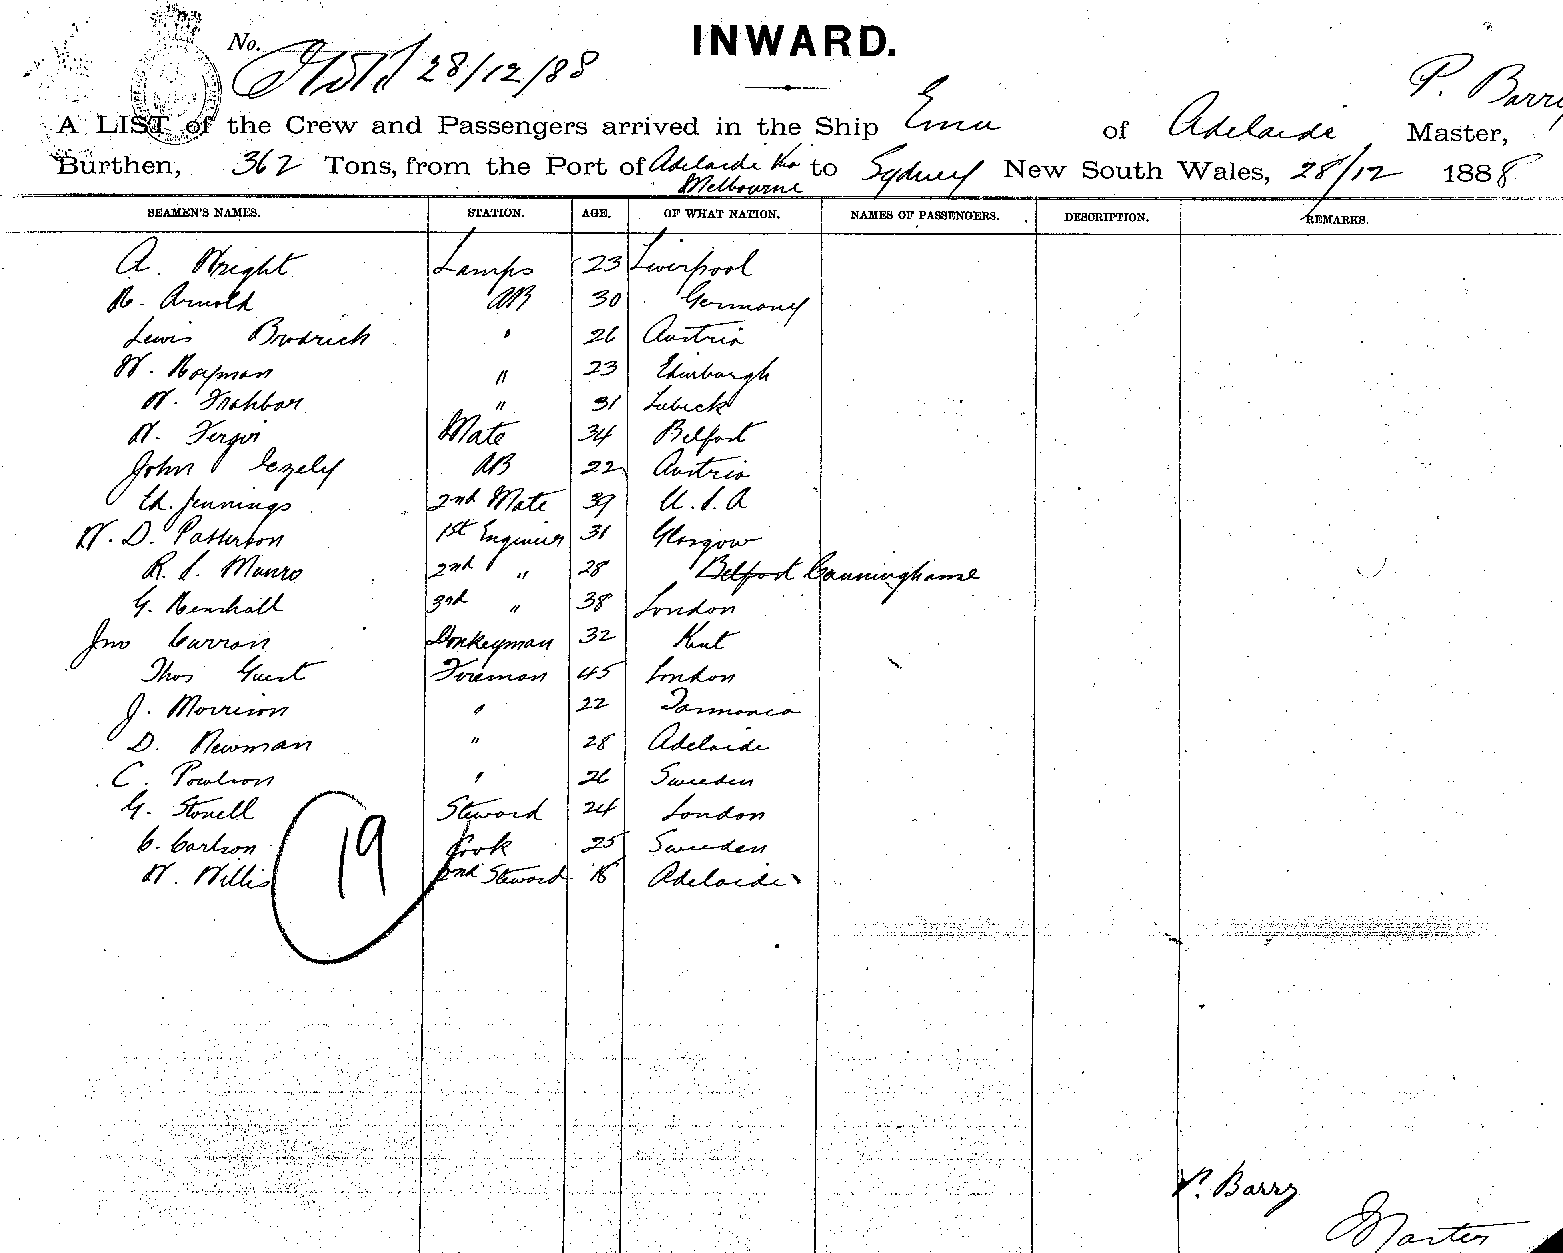 INWARD.
No. 28/12/88
P. Barry
A LIST of the Crew and Passengers arrived in the Ship Emu of Adelaide Master,
Burthen, 362 Tons, from the Port of Adelaide via Melbourne to Sydney New South Wales, 28/12 1888
SEAMEN'S NAMES. STATION. AGE. OF WHAT NATION. NAMES OF PASSENGERS. DESCRIPTION. REMARKS.
A. Wright Lamps 23 Liverpool
R. Arnold AB 30 Germany
Lewis Brodrick " 26 Austria
W. " 23 Edinburgh
" 31 Lubeck
Mate 34 Belfast
John AB 22 Austria
Ch. Jennings 2nd Mate 39 U.S.A
W. D. Patterson 1st Engineer 31 Glasgow
R. S. Munro 2nd " 28 Belfast Cunninghame
G. 3rd " 38 London
Jno Curran Donkeyman 32 Kent
Thos Guest Fireman 45 London
J. Morrison " 22 Tasmania
D. Newman " 28 Adelaide
C. Poulson " 26 Sweden
G. Stonell Steward 24 London
C. Carlson Cook 25 Sweden
W. Willis 2nd Steward 18 Adelaide
19
P. Barry
Master